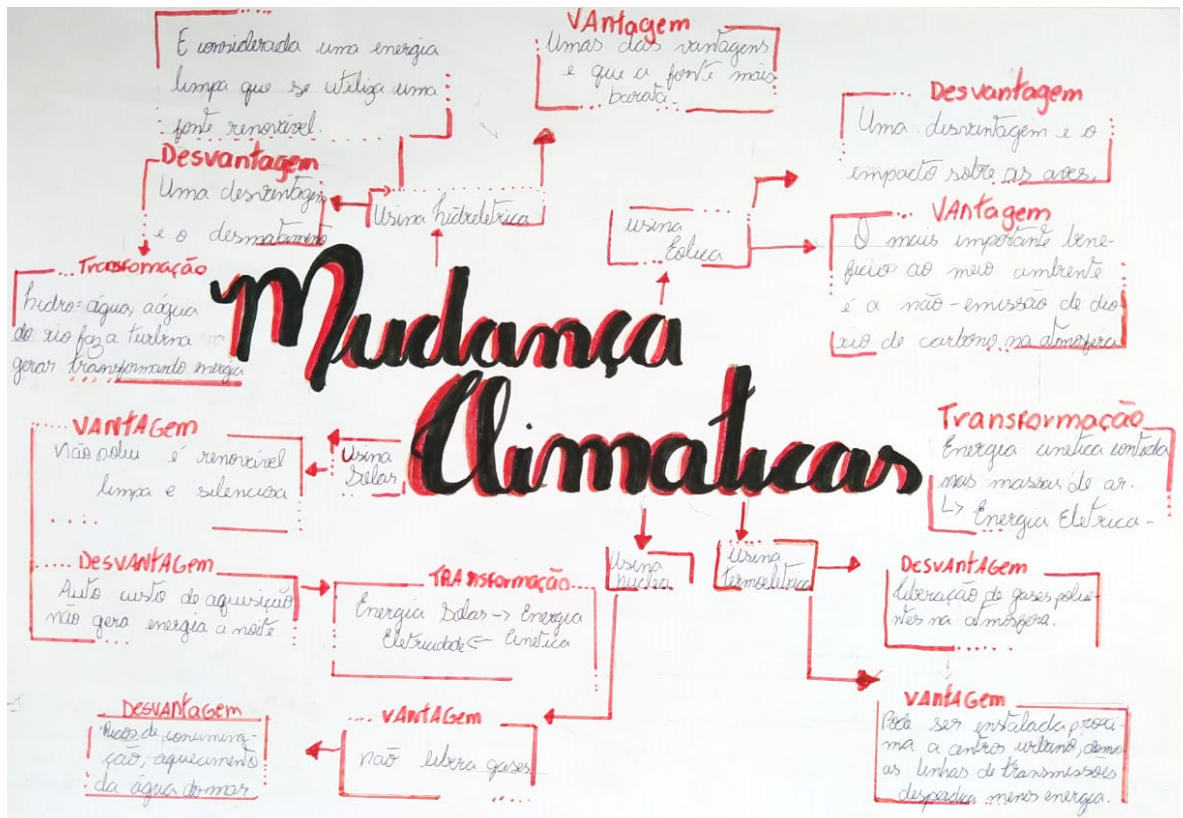 E considerada uma energia
limpa que se utiliza uma
fonte renovável.
VAntagem
Umas das vantagens
e que a fonte mais
barata.
Desvantagem
Uma desvantagem e o
impacto sobre as aves.
Desvantagem
Uma desvantagem
e o desmatamento
Usina hidreletrica
usina
Eolica
VAntagem
O mais importante bene-
ficio ao meio ambiente
é a não-emissão de dio-
xio de carbono na atmosfera
Transformação
hidro= água, a água
do rio faz a turbina
gerar transformando energia
Mudança
Climaticas
VANtAGem
Não polui é renovável
limpa e silenciosa
Usina
Solar
Transformação
Energia cinetica contida
nas massas de ar.
↳ Energia Eletrica-
DesVANtAGem
Auto custo de aquisição
não gera energia a noite
TRAnsformação
Energia Solar -> Energia
Eletricidade <- Cinetica
Usina
nuclear
Usina
termoeletrica
DesVANtAGem
liberação de gases polue-
ntes na atmosfera.
DesvANtAGem
Riscos de contamina-
ção, aquecimento
da água do mar
vANtAGem
não libera gases
VANtAGem
Pode ser instalada proxi-
ma a centros urbano,
as linhas de transmissões
desperdica menos energia.